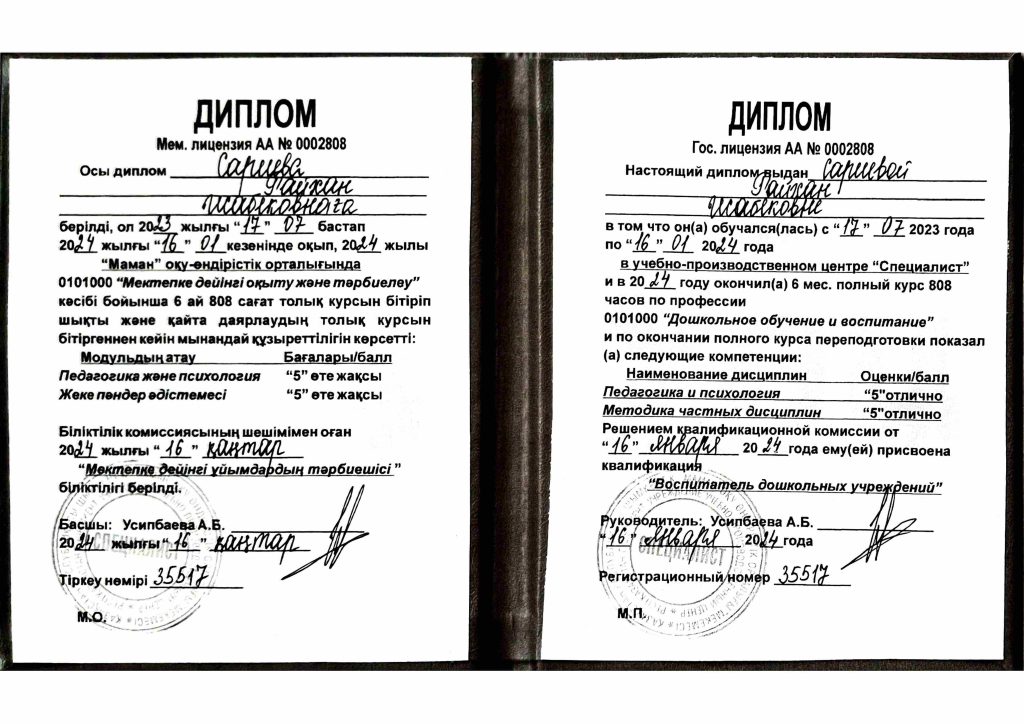 ДИПЛОМ
Мем. лицензия АА № 0002808
Осы диплом Сариева
Райхан
берілді, ол 2023 жылғы “17” 07 бастап
2024 жылғы “16” 01 кезенінде оқып, 2024 жылы
“Маман” оқу-өндірістік орталығында
0101000 “Мектепке дейінгі оқыту және тәрбиелеу”
кәсібі бойынша 6 ай 808 сағат толық курсын бітіріп
шықты және қайта даярлаудың толық курсын
бітіргеннен кейін мынандай құзыреттілігін көрсетті:
Модульдың атау Бағалары/балл
Педагогика және психология “5” өте жақсы
Жеке пәндер әдістемесі “5” өте жақсы
Біліктілік комиссиясының шешімімен оған
2024 жылғы “16” қаңтар
“Мектепке дейінгі ұйымдардың тәрбиешісі”
біліктілігі берілді.
Басшы: Усипбаева А.Б.
2024 жылғы “16” қаңтар
Тіркеу нөмірі 35517
М.О.
ДИПЛОМ
Гос. лицензия АА № 0002808
Настоящий диплом выдан Сариевой
Райхан
в том что он(а) обучался(лась) с “17” 07 2023 года
по “16” 01 2024 года
в учебно-производственном центре “Специалист”
и в 2024 году окончил(а) 6 мес. полный курс 808
часов по профессии
0101000 “Дошкольное обучение и воспитание”
и по окончании полного курса переподготовки показал
(а) следующие компетенции:
Наименование дисциплин Оценки/балл
Педагогика и психология “5"отлично
Методика частных дисциплин “5"отлично
Решением квалификационной комиссии от
“16” января 2024 года ему(ей) присвоена
квалификация
“Воспитатель дошкольных учреждений”
Руководитель: Усипбаева А.Б.
“16” января 2024 года
СПЕЦИАЛИСТ
Регистрационный номер 35517
М.П.